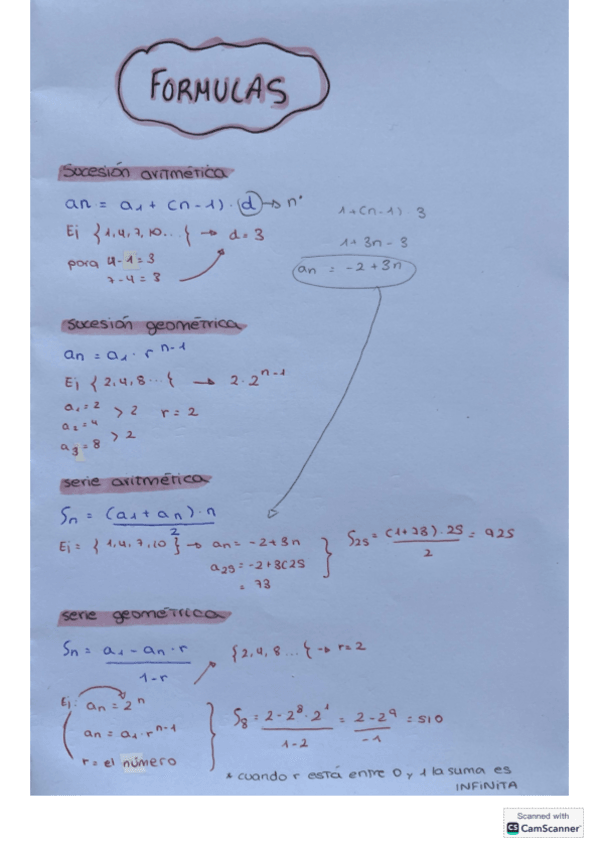 FORMULAS
Sucesión aritmética
an = a1 + (n-1) · d → nº
Ej {1,4,7,10... { → d=3
para 4-1=3
7-4=3
1+(n-1)·3
1+3n-3
an = -2+3n
sucesión geométrica
an = a1 · r^n-1
Ej {2,4,8...{ → 2·2^n-1
a1=2
a2=4
a3=8
> 2
> 2
r=2
serie aritmética
Sn = (a1+an)·n / 2
Ej = {1,4,7,10} → an = -2+3n
a25 = -2+3(25
= 73
S25 = (1+38)·25 / 2 = 925
serie geométrica
Sn = a1 - an · r / 1-r
{2,4,8...{ → r=2
Ej: an = 2^n
an = a1·r^n-1
r = el número
S8 = 2-2^8·2^1 / 1-2 = 2-2^9 / -1 = 510
* cuando r está entre 0 y 1 la suma es
INFINITA
Scanned with
CS CamScanner